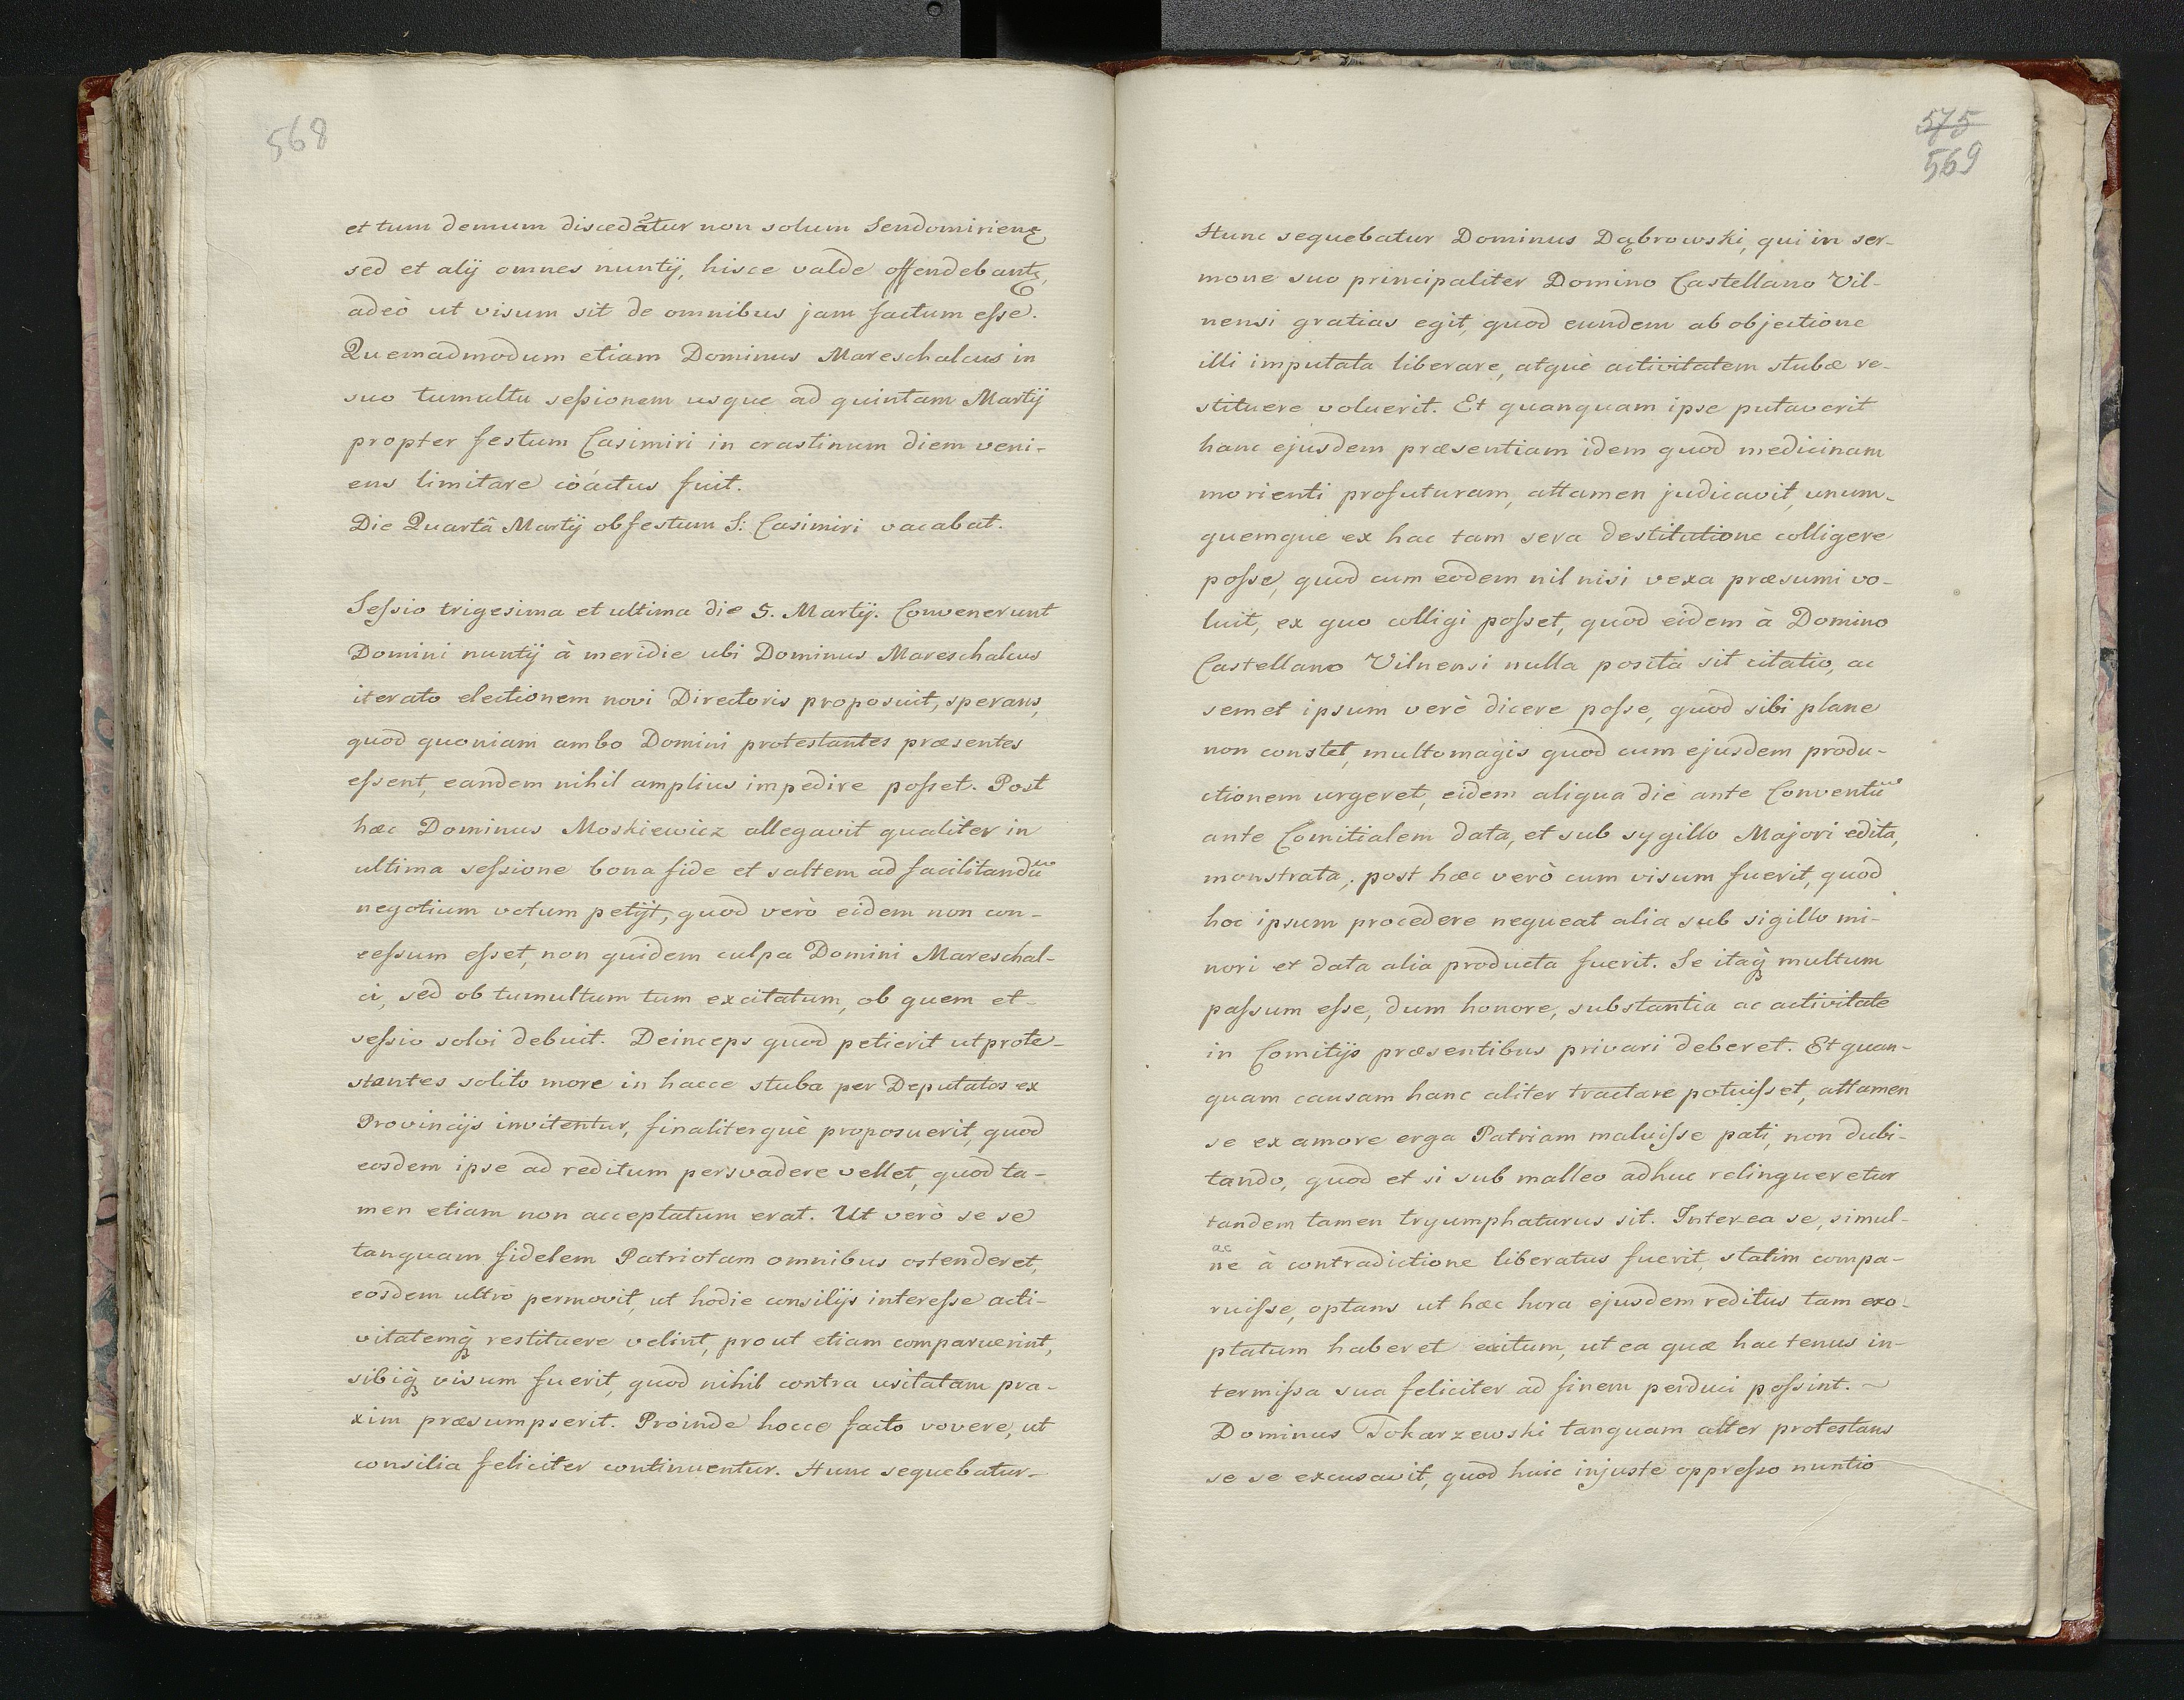 568
et tum demum discedatur non solum Sendomiriens
sed et alij omnes nuntij, hisce valde offendebantr,
adeò ut visum sit de omnibus jam factum esse.
Quemadmodum etiam Dominus Mareschalcus in
suo tumultu sessionem usque ad quintam Martij
propter festum Casimiri in crastinum diem veni-
ens limitare coáctus fuit.
Die Quartâ Martij ob festum S: Casimiri vacabat.
Sessio trigesima et ultima die 5. Martij. Convenerunt
Domini nuntij à meridie ubi Dominus Mareschalcus
iterato electionem novi Directoris proposuit, sperans,
quod quoniam ambo Domini protestantes præsentes
essent, eandem nihil amplius impedire posset. Post
hæc Dominus Moskiewicz allegavit qualiter in
ultima sessione bona fide et saltem ad facilitandum
negotium votum petijt, quod verò eidem non con-
cessum esset, non quidem culpa Domini Mareschal-
ci, sed ob tumultum tum excitatum, ob quem et-
sessio solvi debuit. Deinceps quod petierit ut prote-
stantes solito more in hacce stuba per Deputatos ex
Provincijs invitentur, finaliterquè proposuerit, quod
eosdem ipse ad reditum persvadere vellet, quod ta-
men etiam non acceptatum erat. Ut verò se se
tanquam fidelem Patriotam omnibus ostenderet,
eosdem ultrò permovit, ut hodie consilijs interesse acti-
vitatemq restituere velint, prout etiam comparuerint,
sibiq visum fuerit, quod nihil contra usitatam pra-
xim præsumpserit. Proinde hocce facto vovere, ut
consilia feliciter continuentur. Hunc sequebatur-
575
569
Hunc sequebatur Dominus Dąbrowski, qui in ser-
mone suo principaliter Domino Castellano Vil-
nensi gratias egit, quod eundem ab objectione
illi imputata liberare, atquè activitatem stubæ re-
stituere voluerit. Et quanquam ipse putaverit
hanc ejusdem præsentiam idem quod medicinam
morienti profuturam, attamen judicavit, unum-
quemque ex hac tam sera destitutione colligere
posse, quod cum eodem nil nisi vexa præsumi vo-
luit, ex quo colligi posset, quod eidem à Domino
Castellano Vilnensi nulla posita sit citatio, ac
semet ipsum verè dicere posse, quod sibi plane
non constet, multomagis quod cum ejusdem produ-
ctionem urgeret, eidem aliqua die ante Conventum
ante Comitialem data, et sub sygillo Majori edita,
monstrata; post hæc verò cum visum fuerit, quod
hoc ipsum procedere nequeat alia sub sigillo mi-
nori et data alia producta fuerit. Se itaq multum
passum esse, dum honore, substantia ac activitate
in Comitijs præsentibus privari deberet. Et quan-
quam causam hanc aliter tractare potuisset, attamen
se ex amore erga Patriam maluisse pati, non dubi-
tando, quod et si sub malleo adhuc relinqueretur
tandem tamen tryumphaturus sit. Interea se, simul-
ac
ne à contradictione liberatus fuerit, statim compa-
ruisse, optans ut hæc hora ejusdem reditus tam exo-
ptatum haberet exitum, ut ea quæ hactenus in-
termissa sua feliciter ad finem perduci possint. ~
Dominus Tokarzewski tanquam alter protestans
se se excusavit, quod huic injuste oppresso nuntio